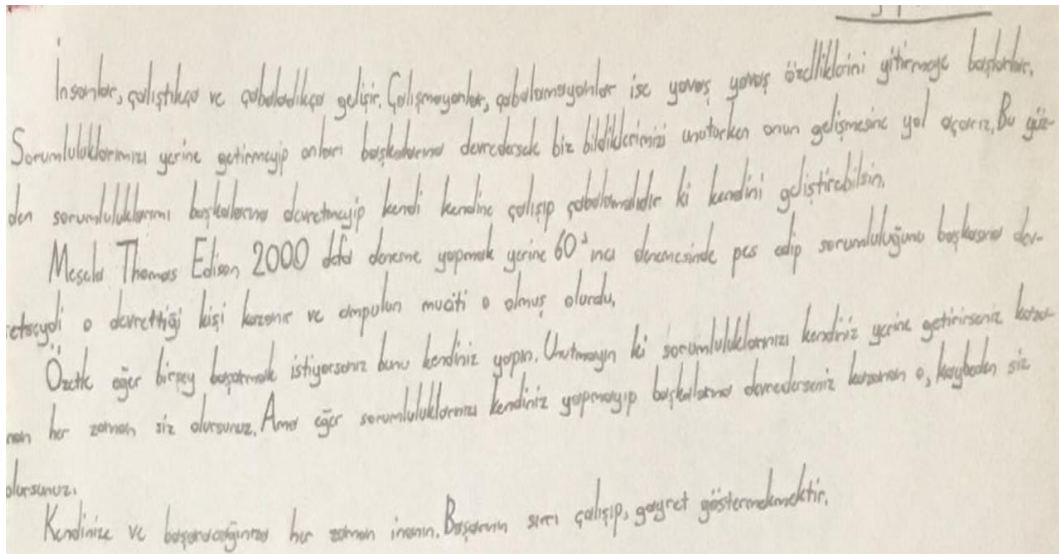 İnsanlar, çalıştıkça ve çabaladıkça gelişir. Çalışmayanlar, çabalamayanlar ise yavaş yavaş özelliklerini yitirmeye başlarlar.
Sorumluluklarımızı yerine getirmeyip onları başkalarına devredersek biz bildiklerimizi unuturken onun gelişmesine yol açarız. Bu yüz-
den sorumluluklarımı başkalarına devretmeyip kendi kendine çalışıp çabalamalıdır ki kendini geliştirebilsin.
Mesela Thomas Edison 2000 defa deneme yapmak yerine 60'ıncı denemesinde pes edip sorumluluğunu başkasına dev-
retseydi o devrettiği kişi kazanır ve ampulun muciti o olmuş olurdu.
Özetle eğer birşey başarmak istiyorsanız bunu kendiniz yapın. Unutmayın ki sorumluluklarınızı kendiniz yerine getirirseniz kaza-
nan her zaman siz olursunuz. Ama eğer sorumluluklarınızı kendiniz yapmayıp başkalarına devrederseniz kazanan o, kaybeden siz
olursunuz.
Kendinize ve başaracağınıza her zaman inanın. Başarının sırrı çalışıp, gayret